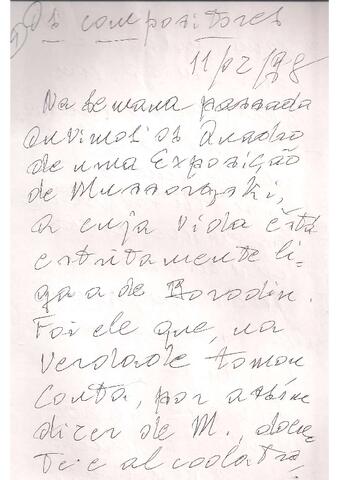 1) Os compositores
11/02/98
Na semana passada
ouvimos os Quadro
de uma Exposição
de Mussorgski,
a cuja vida está
estritamente li-
ga a de Borodin.
Foi ele que, na
verdade tomou
conta, por assim
dizer de M., doen-
te e alcoólatra,